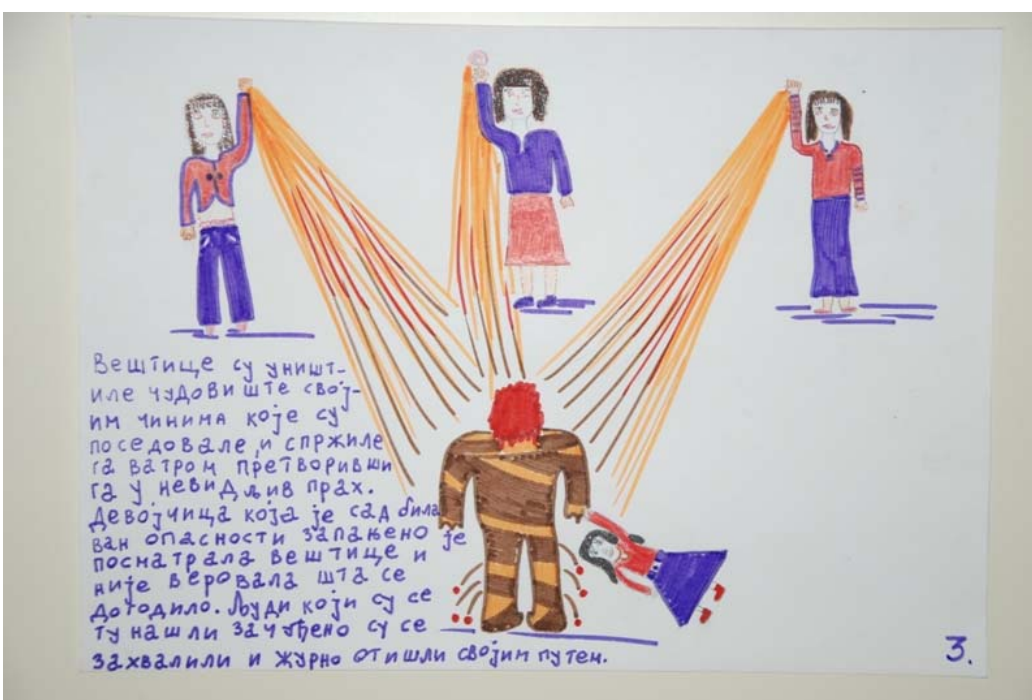 Вештице су уништ-
иле чудовиште свој-
им чинима које су
поседовале, и спржиле
га ватром претворивши
га у невидљив прах.
Девојчица која је сад била
ван опасности запањено је
посматрала вештице и
није веровала шта се
догодило. Људи који су се
ту нашли зачуђено су се
захвалили и журно отишли својим путем.
3.